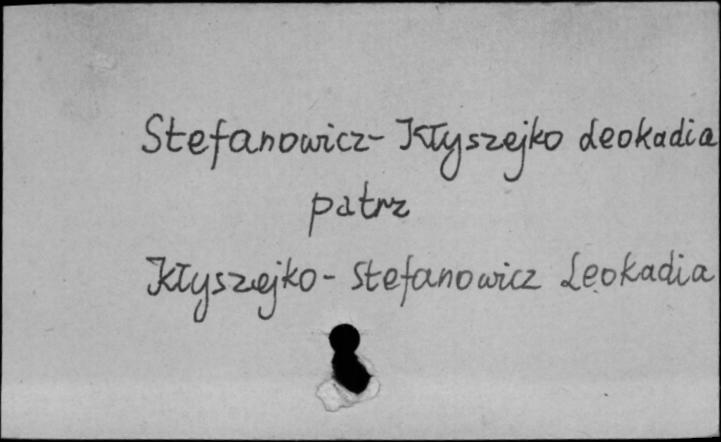 Stefanowicz-Kłyszejko Leokadia
patrz
Kłyszejko-Stefanowicz Leokadia